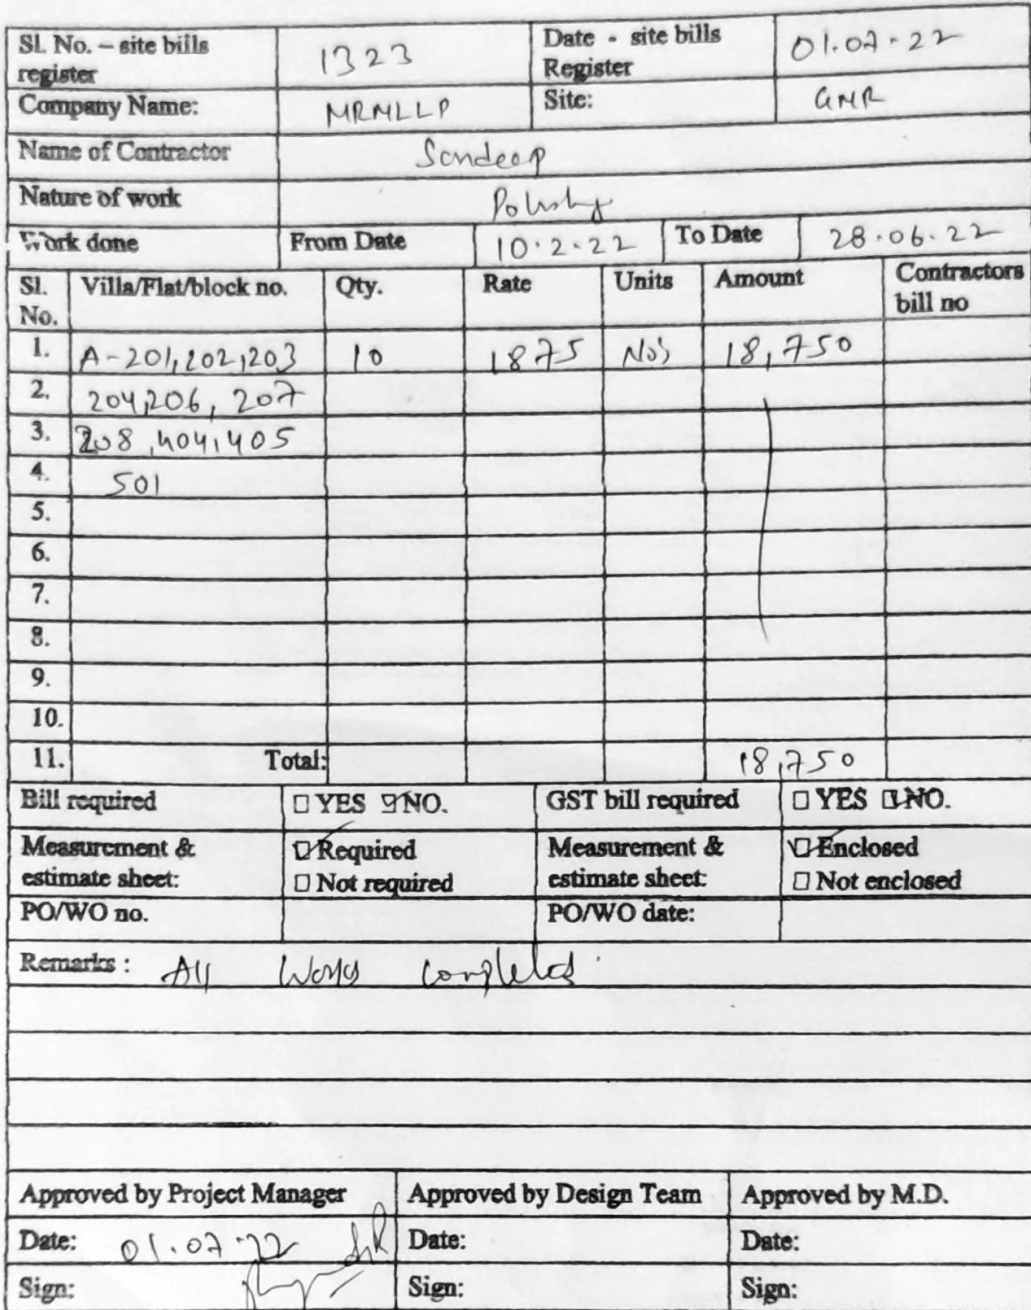 Sl. No. – site bills register 1323 Date - site bills Register 01.07.22
Company Name: MRMLLP Site: GMR
Name of Contractor Sandeep
Nature of work
Work done From Date 10.2.22 To Date 28.06.22
Sl. No. Villa/Flat/block no. Qty. Rate Units Amount Contractors bill no
1. A-201,202,203 10 1875 No's 18,750
2. 204,206, 207
3. 208,404,405
4. 501
5.
6.
7.
8.
9.
10.
11. Total: 18,750
Bill required ☐ YES ☑ NO. GST bill required ☐ YES ☑ NO.
Measurement & estimate sheet: ☑ Required Measurement & estimate sheet: ☑ Enclosed
☐ Not required ☐ Not enclosed
PO/WO no. PO/WO date:
Remarks : All Works completed
Approved by Project Manager Approved by Design Team Approved by M.D.
Date: 01.07.22 Date: Date:
Sign: Sign: Sign: